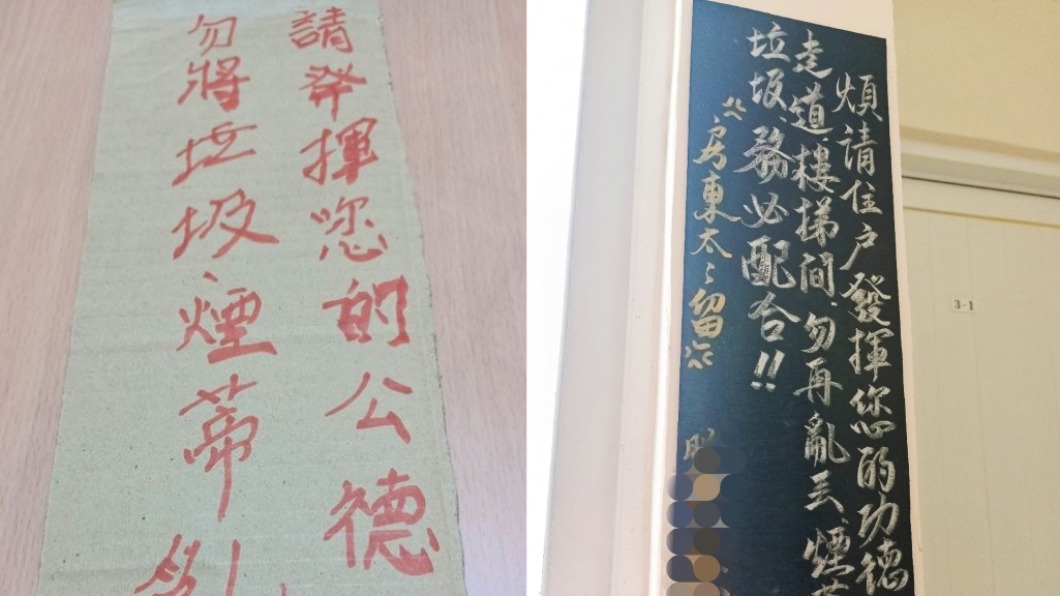 請発揮您的公德
勿將垃圾、煙蒂
煩請住戶發揮您的功德
走道、樓梯間、勿再亂丟、煙蒂
垃圾、務必配合!!
房東太々留
3-1